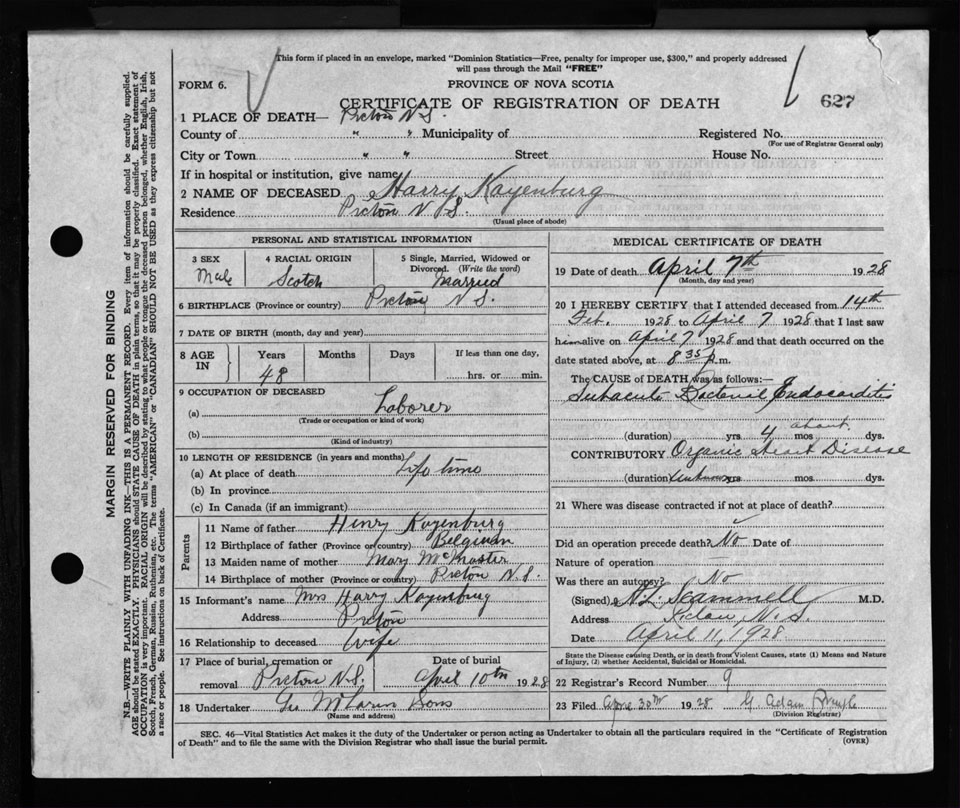 This form if placed in an envelope, marked "Dominion Statistics—Free, penalty for improper use, $300," and properly addressed
will pass through the Mail "FREE"
FORM 6.
PROVINCE OF NOVA SCOTIA
CERTIFICATE OF REGISTRATION OF DEATH
627
1 PLACE OF DEATH— Pictou N.S.
County of " " Municipality of Registered No.
(For use of Registrar General only)
City or Town " " Street House No.
If in hospital or institution, give name
2 NAME OF DECEASED Harry Kayenburg
Residence Pictou N.S.
(Usual place of abode)
PERSONAL AND STATISTICAL INFORMATION
3 SEX Male
4 RACIAL ORIGIN Scotch
5 Single, Married, Widowed or Divorced. (Write the word) Married
6 BIRTHPLACE (Province or country) Pictou N.S.
7 DATE OF BIRTH (month, day and year)
8 AGE IN Years Months Days If less than one day,
48 hrs. or min.
9 OCCUPATION OF DECEASED
(a) Laborer
(Trade or occupation or kind of work)
(b)
(Kind of industry)
10 LENGTH OF RESIDENCE (in years and months)
(a) At place of death Life time
(b) In province
(c) In Canada (if an immigrant)
Parents
11 Name of father Henry Kayenburg
12 Birthplace of father (Province or country) Belgium
13 Maiden name of mother Mary McMaster
14 Birthplace of mother (Province or country) Pictou N.S.
15 Informant's name Mrs Harry Kayenburg
Address Pictou
16 Relationship to deceased Wife
17 Place of burial, cremation or removal Pictou N.S.
Date of burial April 10th 1928
18 Undertaker Geo McLaren Sons
(Name and address)
MEDICAL CERTIFICATE OF DEATH
19 Date of death April 7th 1928
(Month, day and year)
20 I HEREBY CERTIFY that I attended deceased from 14th
Feb. 1928 to April 7 1928 that I last saw
him alive on April 7 1928 and that death occurred on the
date stated above, at 8 35 p.m.
The CAUSE of DEATH was as follows:—
Subacute Bacterial Endocarditis
about
(duration) yrs. 4 mos. dys.
CONTRIBUTORY Organic Heart Disease
(duration) Unknown yrs. mos. dys.
21 Where was disease contracted if not at place of death?
Did an operation precede death? No Date of
Nature of operation
Was there an autopsy? No
(Signed) Scammell M.D.
Address Pictou, N.S.
Date April 11, 1928
State the Disease causing Death, or in death from Violent Causes, state (1) Means and Nature
of Injury, (2) whether Accidental, Suicidal or Homicidal.
22 Registrar's Record Number 9
23 Filed April 30th 1928 G. Adam
(Division Registrar)
SEC. 46—Vital Statistics Act makes it the duty of the Undertaker or person acting as Undertaker to obtain all the particulars required in the "Certificate of Registration
of Death" and to file the same with the Division Registrar who shall issue the burial permit.
(OVER)
MARGIN RESERVED FOR BINDING
N.B.—WRITE PLAINLY WITH UNFADING INK—THIS IS A PERMANENT RECORD. Every item of information should be carefully supplied.
AGE should be stated EXACTLY. PHYSICIANS should STATE CAUSE OF DEATH in plain terms, so that it may be properly classified. Exact statement of
OCCUPATION is very important. RACIAL ORIGIN will be described by stating to what people or tongue the deceased person belonged, whether English, Irish,
Scotch, French, German, Russian, Ruthenian, etc. The terms "AMERICAN" or "CANADIAN" SHOULD NOT BE USED as they express citizenship but not
a race or people. See instructions on back of Certificate.